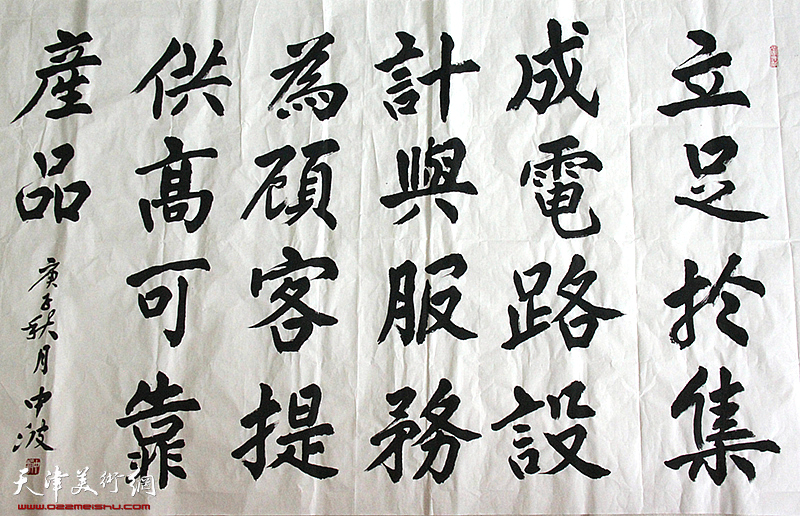 立足於集
成電路設
計與服務
為顧客提
供高可靠
產品
庚子秋月中波
天津美術網
www.022meishu.com